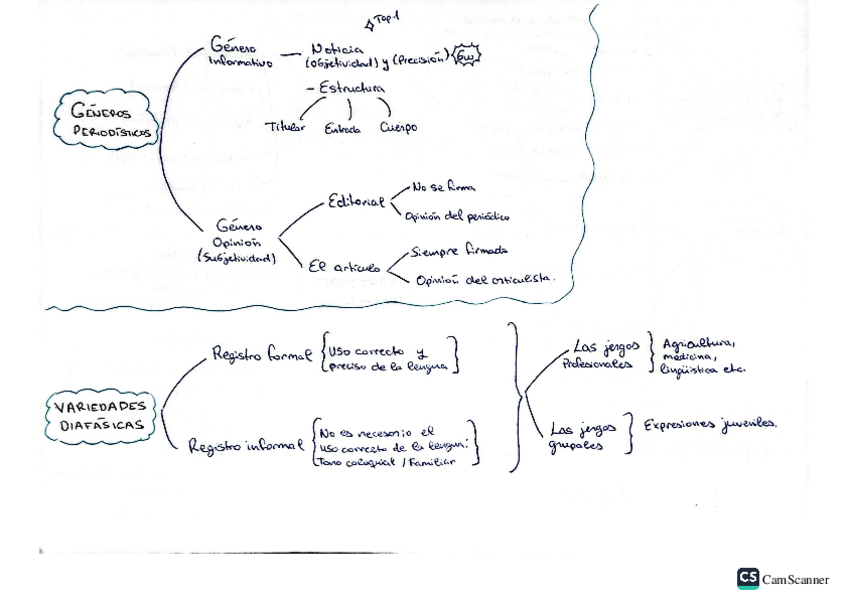 Top 1
GÉNEROS
PERIODÍSTICOS
Género
Informativo
Noticia
(Objetividad) y (Precisión) 6W
- Estructura
Titular Entrada Cuerpo
Género
Opinión
(Subjetividad)
Editorial
No se firma
Opinión del periódico
El artículo
Siempre firmado
Opinión del articulista.
VARIEDADES
DIAFÁSICAS
Registro formal
Uso correcto y
preciso de la lengua
Registro informal
No es necesario el
uso correcto de la lengua.
Tono coloquial / Familiar
Las jergas
Profesionales
Agricultura,
medicina,
lingüística etc.
Las jergas
grupales
Expresiones juveniles.
CS CamScanner